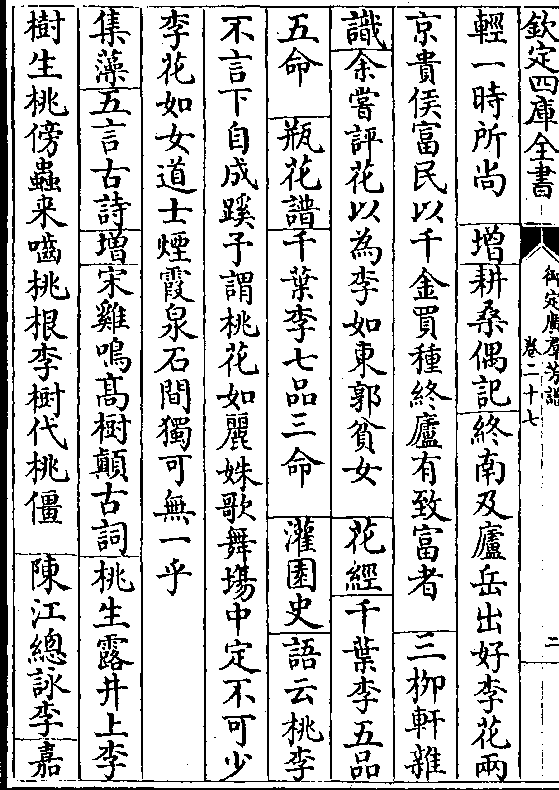 欽定四庫全書
御定廣群芳譜
卷二十七
二
輕一時所尚　增耕桑偶記終南及廬岳出好李花兩
京貴侯富民以千金買種終廬有致富者　三柳軒雜
識余嘗評花以為李如東郭貧女　花經千葉李五品
五命　瓶花譜千葉李七品三命　灌園史語云桃李
不言下自成蹊予謂桃花如麗姝歌舞塲中定不可少
李花如女道士煙霞泉石間獨可無一乎
集藻五言古詩增宋雞鳴髙樹顛古詞桃生露井上李
樹生桃傍蟲来囓桃根李樹代桃僵　陳江總詠李嘉